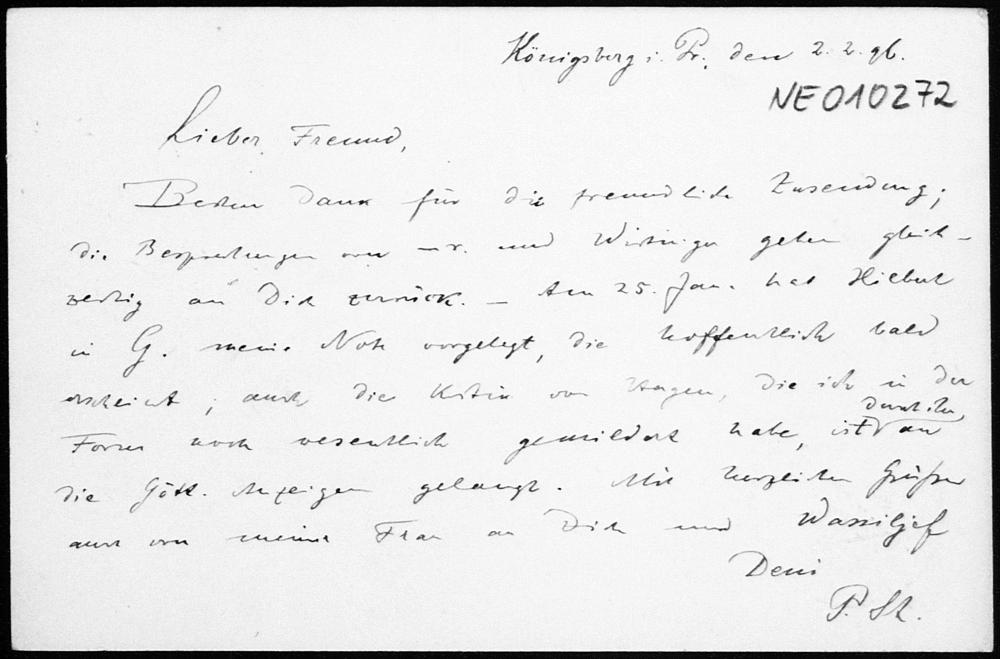 Königsberg i. Pr., den 2.2.96.
NE010272
Lieber Freund,
Besten Dank für die freundliche Zusendung;
die Besprechungen von und gehen gleich-
zeitig an Dich zurück. – Am 25. Jan. hat Hilbert
in G. meine Note vorgelegt, die hoffentlich bald
erscheint; auch die Kritik von Hagen, die ich in der
durch ihn
Form noch wesentlich gemildert habe, ist an
die Gött. Anzeigen gelangt. Mit herzlichen Grüßen
auch von meiner Frau an Dich und Wassiljef
Dein
P. St.